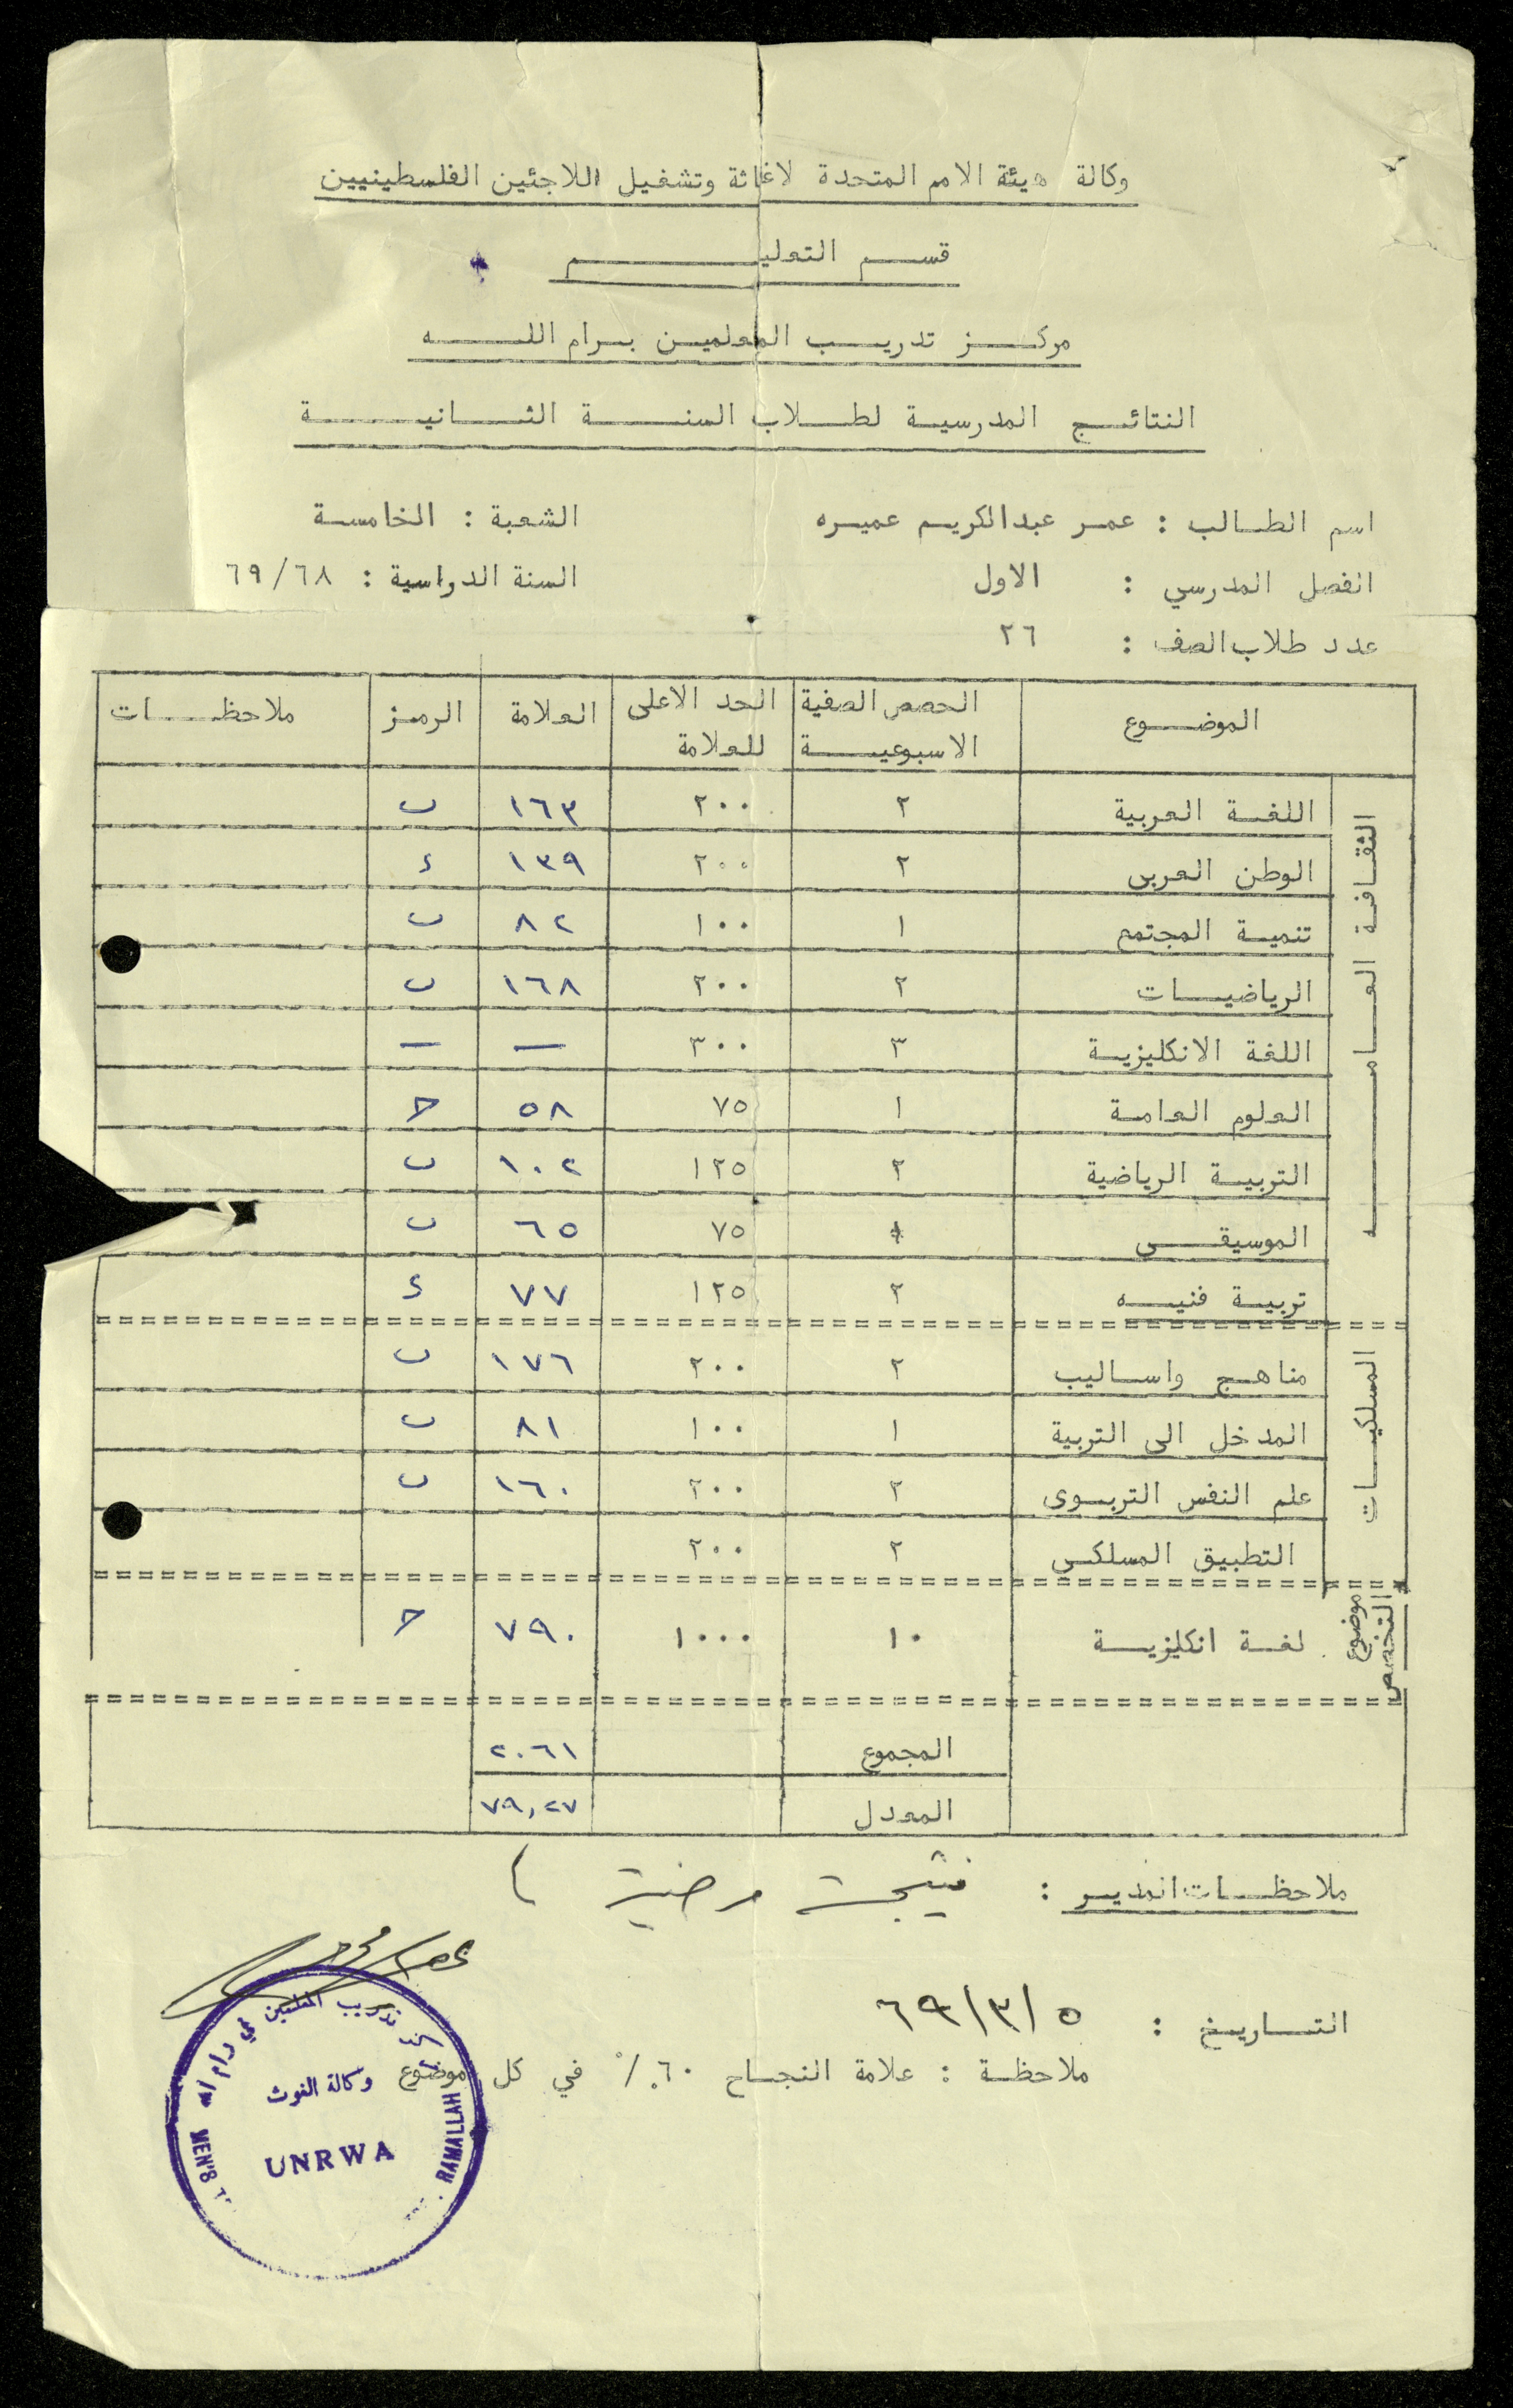 وكالة هيئة الامم المتحدة لاغاثة وتشغيل اللاجئين الفلسطينيين
قسم التعليم
مركز تدريب المعلمين برام الله
النتائج المدرسية لطلاب السنة الثانية
اسم الطالب : عمر عبدالكريم عميره الشعبة : الخامسة
الفصل المدرسي : الاول السنة الدراسية : ٦٩/٦٨
عدد طلاب الصف : ٢٦
الموضوع الحصص الصفية الاسبوعية الحد الاعلى للعلامة العلامة الرمز ملاحظات
الثقافة العامه
اللغة العربية ٢ ٢٠٠ ١٦٣ ب
الوطن العربي ٢ ٢٠٠ ١٣٩ د
تنمية المجتمع ١ ١٠٠ ٨٢ ب
الرياضيات ٢ ٢٠٠ ١٦٨ ب
اللغة الانكليزية ٣ ٣٠٠ — —
العلوم العامة ١ ٧٥ ٥٨ ح
التربية الرياضية ٢ ١٢٥ ١٠٢ ب
الموسيقى ١ ٧٥ ٦٥ ب
تربية فنيه ٢ ١٢٥ ٧٧ د
المسلكيات
مناهج واساليب ٢ ٢٠٠ ١٧٦ ب
المدخل الى التربية ١ ١٠٠ ٨١ ب
علم النفس التربوى ٢ ٢٠٠ ١٦٠ ب
التطبيق المسلكي ٢ ٢٠٠
موضوع التخصص
لغة انكليزية ١٠ ١٠٠٠ ٧٩٠ ح
المجموع ٢٠٦١
المعدل ٧٩,٢٧
ملاحظات المدير : نتيجة مرضية
التاريخ : ٥/٣/٦٩
ملاحظة : علامة النجاح ٦٠٪ في كل موضوع
تدريب المعلمين في رام الله
وكالة الغوث
UNRWA
RAMALLAH MEN'S